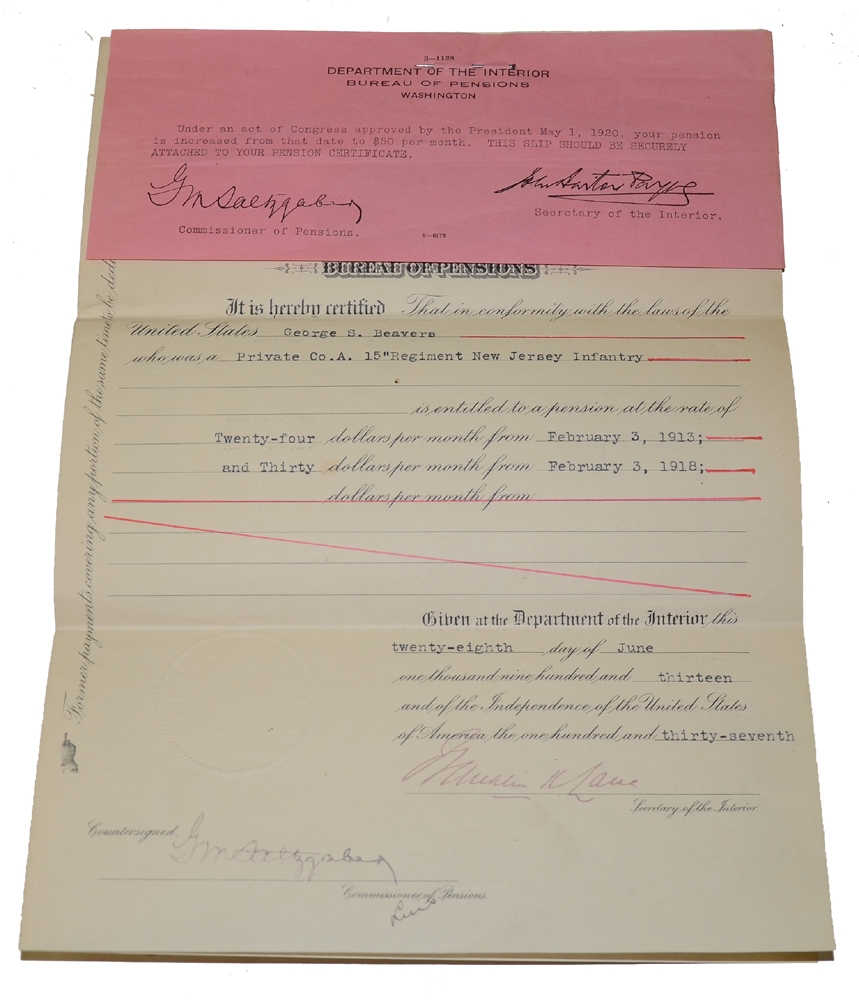 3—1128
DEPARTMENT OF THE INTERIOR
BUREAU OF PENSIONS
WASHINGTON
Under an act of Congress approved by the President May 1, 1920, your pension
is increased from that date to $50 per month. THIS SLIP SHOULD BE SECURELY
ATTACHED TO YOUR PENSION CERTIFICATE.
G M Saltzgaber
John Barton Payne
Commissioner of Pensions.
Secretary of the Interior.
6—6175
BUREAU OF PENSIONS
It is hereby certified That in conformity with the laws of the
United States George S. Beavers
who was a Private Co.A. 15" Regiment New Jersey Infantry
is entitled to a pension at the rate of
Twenty-four dollars per month from February 3, 1913;
and Thirty dollars per month from February 3, 1918;
dollars per month from
Given at the Department of the Interior this
twenty-eighth day of June
one thousand nine hundred and thirteen
and of the Independence of the United States
of America the one hundred and thirty-seventh
Franklin K Lane
Secretary of the Interior.
Countersigned.
G M Saltzgaber
Commissioner of Pensions
Former payments covering any portion of the same time to be dedu